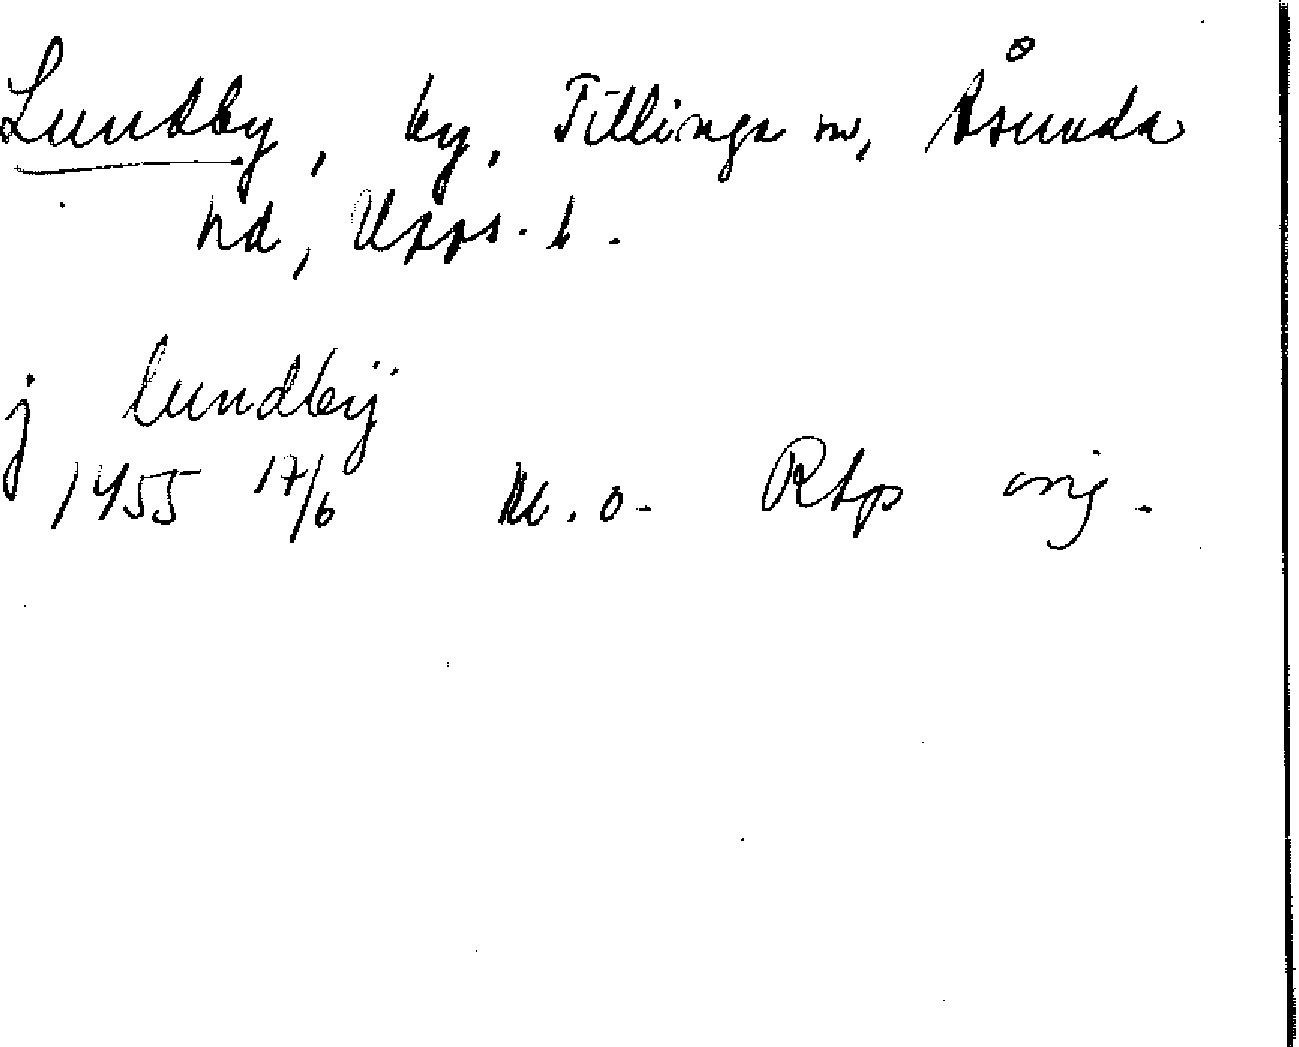 Lundby, by, Tillinge sn, Åsunda
hd, Upps. l.
j lundbÿ
1455 17/6 u. o. RAp orig.